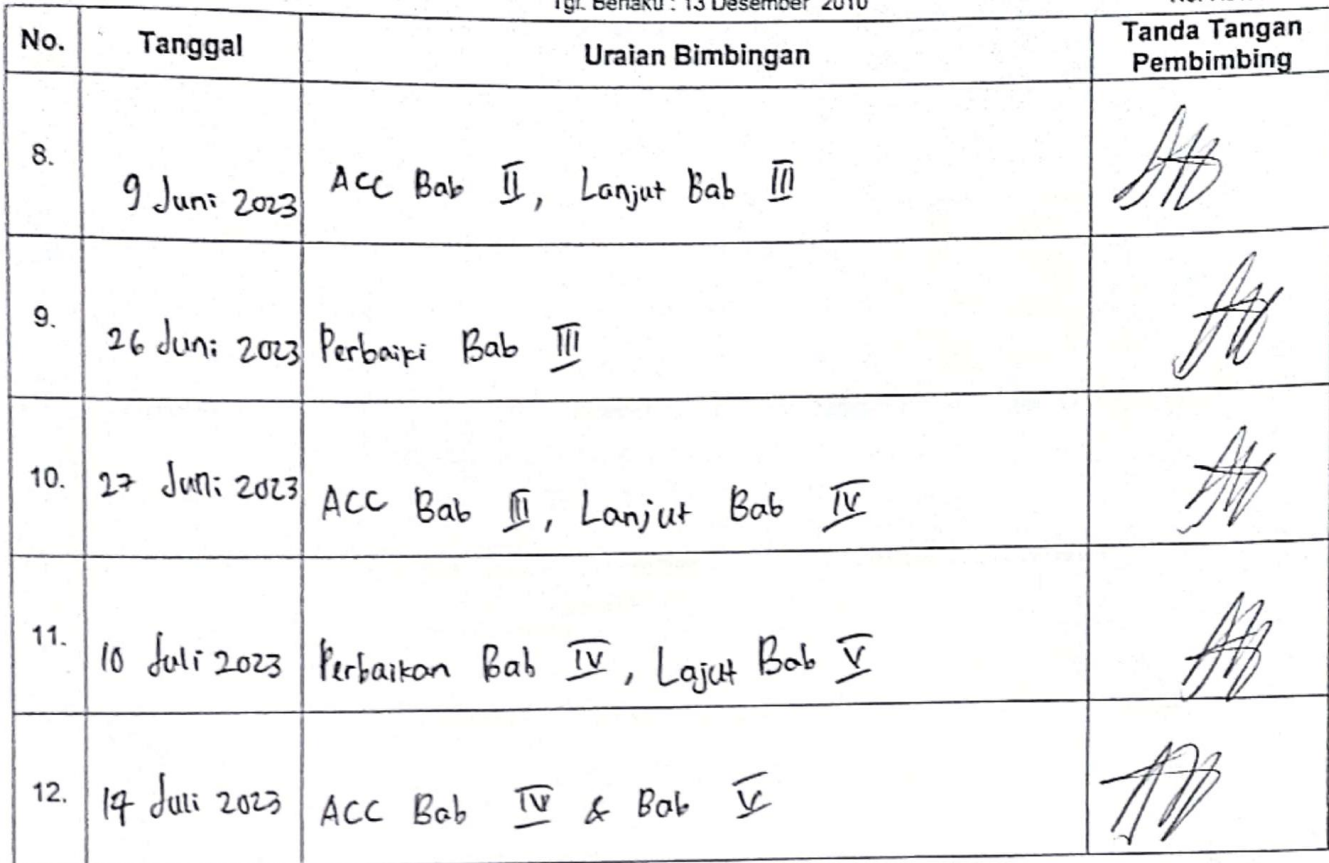 Tgl. Berlaku : 13 Desember 2010
No. Tanggal Uraian Bimbingan Tanda Tangan Pembimbing
8. 9 Juni 2023 ACC Bab II, Lanjut Bab III
9. 26 Juni 2023 Perbaiki Bab III
10. 27 Juni 2023 ACC Bab III, Lanjut Bab IV
11. 10 Juli 2023 Perbaikan Bab IV, Lajut Bab V
12. Juli 2023 ACC Bab IV & Bab V